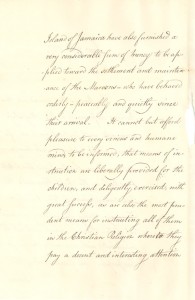 Island of Jamaica have also furnished a
very considerable sum of money to be ap-
plied toward the settlement and mainten-
ance of the Maroons who have behaved
orderly peaceably and quietly since
their arrival. It cannot but afford
pleasure to every serious and humane
mind to be informed, that means of in-
struction are liberally provided for the
children, and diligently exercised, with
great success, as are also the most pru-
dent means for instructing all of them
in the Christian Religion whereto they
pay a decent and interesting attention